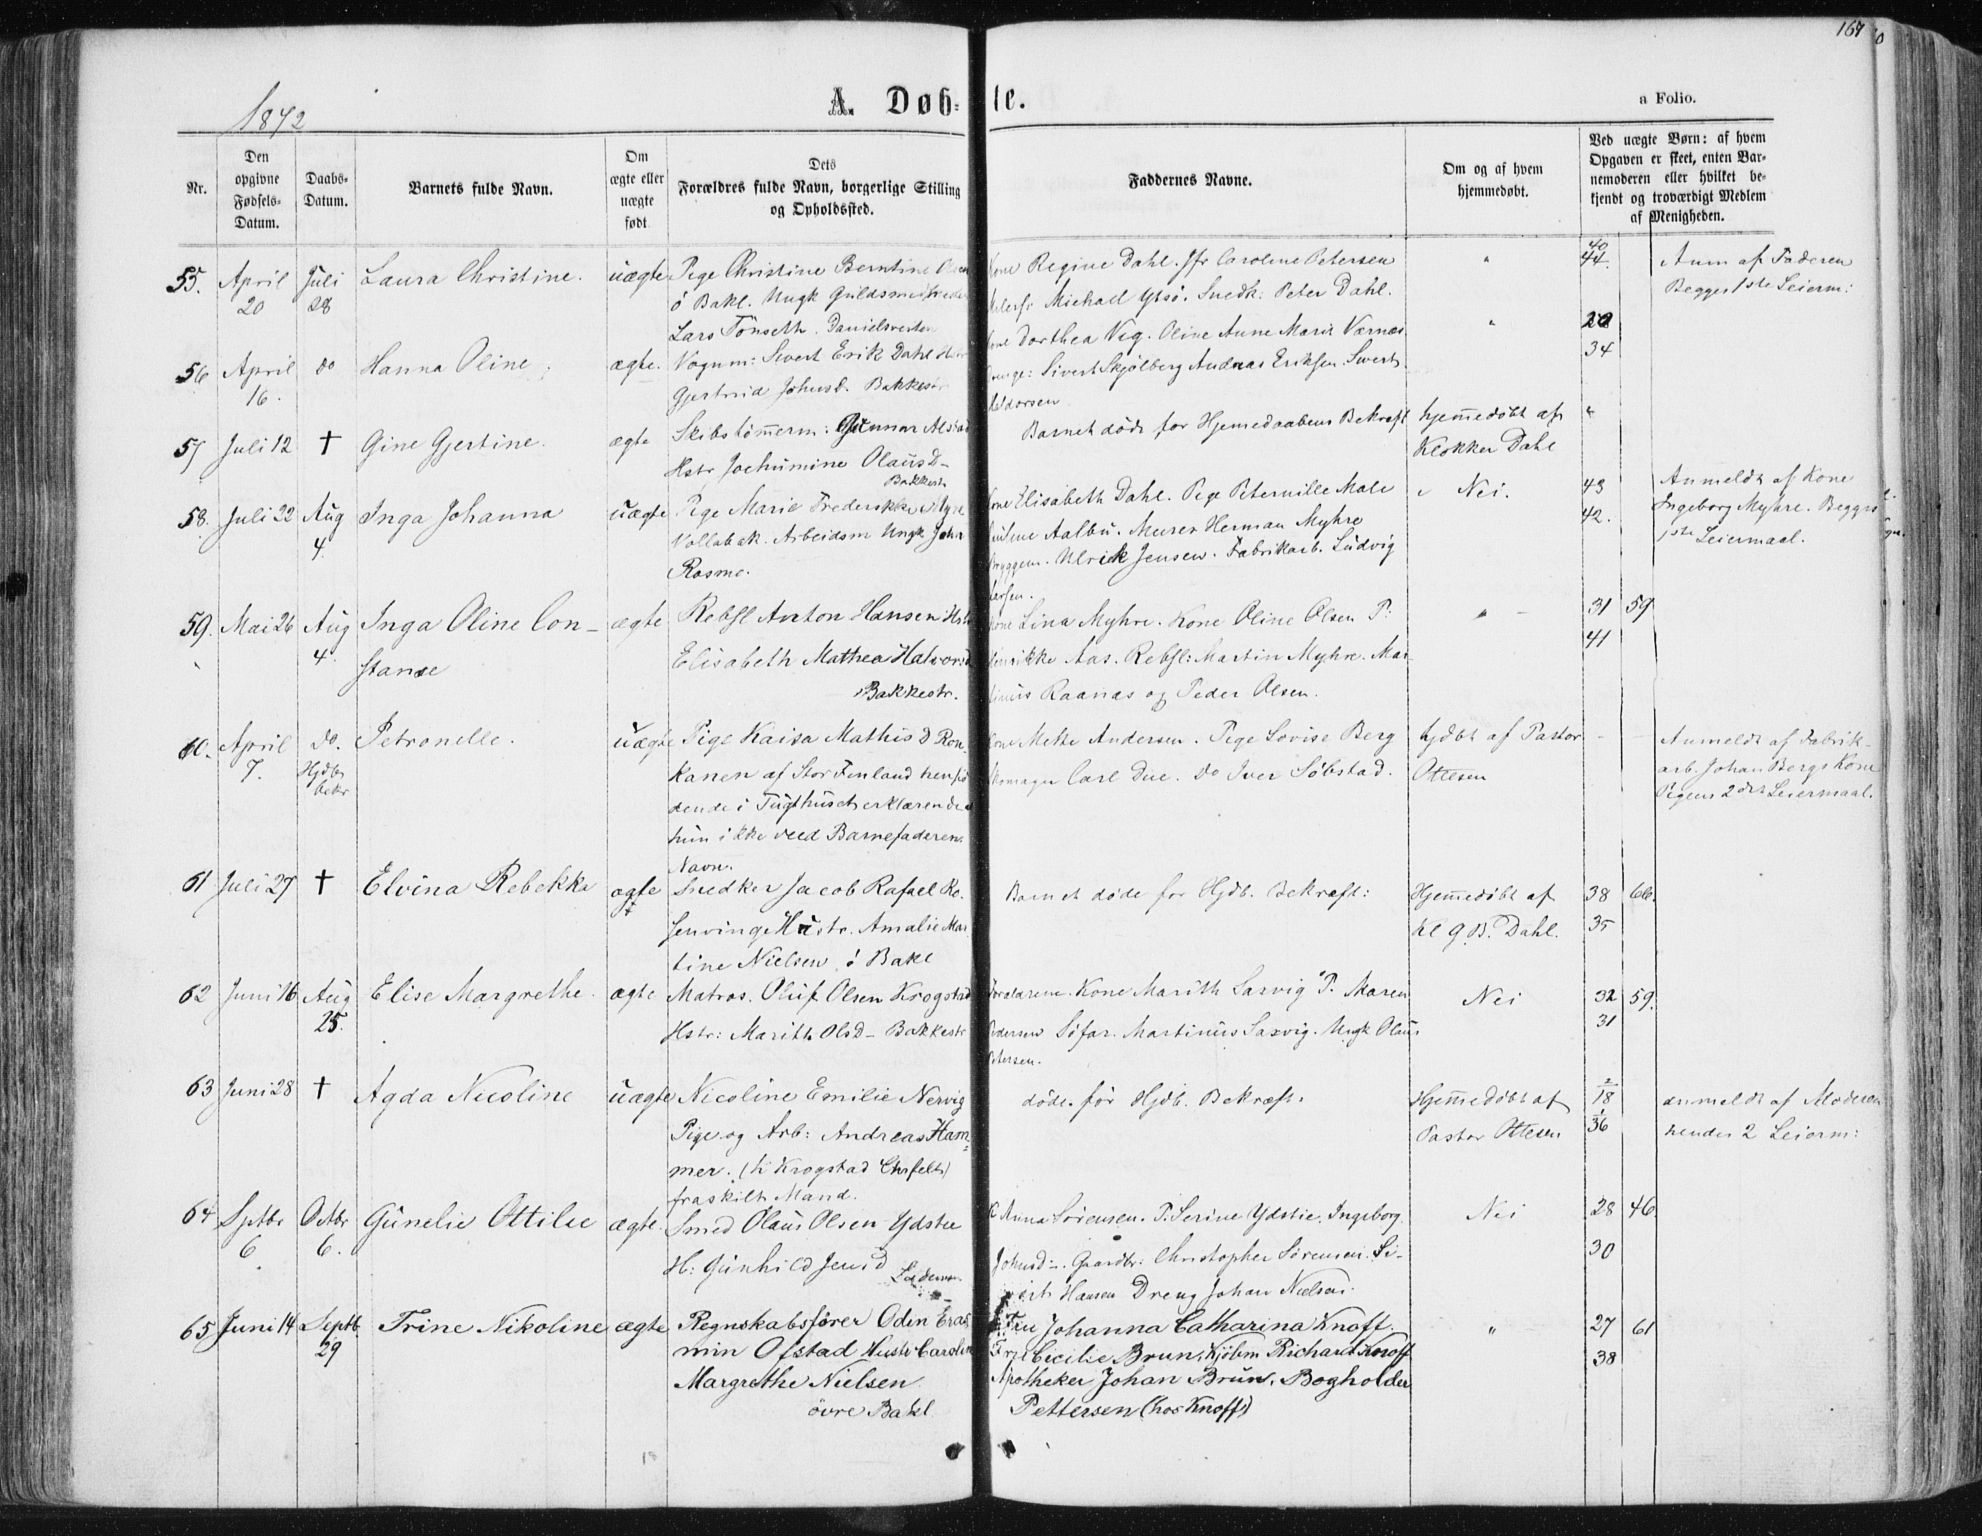 167
1872
A. Døbte.
a Folio.
Nr.
Den opgivne Fødsels-Datum.
Daabs-Datum.
Barnets fulde Navn.
Om ægte eller uægte født
Dets Forældres fulde Navn, borgerlige Stilling og Opholdssted.
Faddernes Navne.
Om og af hvem hjemmedøbt.
Ved uægte Børn: af hvem Opgaven er skeet, enten Barnemoderen eller hvilket bekjendt og troværdigt Medlem af Menigheden.
55. April 20 Juli 28 Laura Christine. uægte
Pige Christine Berntine Olsen
ö Bakl. Ungk Guldsmed
Lars Tönseth. Danielsveten
Kone Regine Dahl. Jfr Carolene Petersen
Michall Ytsö. Snedk: Peter Dahl.
"
40
44.
Anm af Faderen
Begges 1ste Leierm:
56 April 16. do Hanna Oline ægte.
Vognm: Sivert Erik Dahl Hstr
Gjertrud Johnsd. Bakkestr
Kone Dorthea Vig. Oline Anne Marie Værnæs
Drenge: Sivert Skjölberg Andreas Eriksen. Sivert
Haldorsen
"
29
34
57 Juli 12 † Gine Gjertine. ægte
Skibstömerm: Gunnar Alstad
Hstr Jochumine OlausD-
Bakkestr
Barnet döde for Hjemedaabens Bekræft
hjemedöbt af
Klokker Dahl
"
58. Juli 22 Aug 4 Inga Johanna uægte
Pige Marie Frederikke Myre
Vollabak. Arbeidsm Ungk John
Rosmo.
Kone Elisabeth Dahl. Pige Peternille Male
Aalbu. Murer Herman Myhre
Bryggem. Ulrick Jensen. Fabrikarb. Ludvig
Nei.
43
42.
Anmeldt af Kone
Ingeborg Myhre. Begges
1ste Leiermaal.
59. Mai 26 Aug 4. Inga Oline Con-
stanse
ægte
Rebsl Anton Hansen Hstr
Elisabeth Mathea Halvorsd
Bakkestr.
Kone Lina Myhre. Kone Oline Olsen P:
Henrikke Aas. Rebsl: Martin Myhre. Mar-
tinus Raanas og Peder Olsen.
"
31 59
41
60. April 7. do. Hjdbs bekr Petronelle. uægte
Pige Kaisa MathisD Ron-
kanen af Stor Fenland hensid
dende i Tugthuset erklærende at
hun ikke veed Barnefaderens
Navn.
Kone Mette Andersen. Pige Lovise Berg
Skomager Carl Due. Do Iver Söbstad.
hjdbt af Pastor
Ottesen
Anmeldt af Fabrik-
arb. Johan Bergs Kone
Pigens 2det Leiermaal.
61 Juli 27 † Elvina Rebekka ægte
Snedker Jacob Rafael Ro-
senving Hustr. Amalie Mar
tine Nielsen ö Bakl
Barnet döde for Hjdb. Bekræft:
Hjemedöbt af
Kl G.B. Dahl.
38 66.
35
62 Juni 16 Aug 25. Elise Margrethe. ægte
Matros. Oluf Olsen Krogstad
Hstr: Marith OlsD- Bakkestr
Forældrene. Kone Marith Saxvig P. Maren
Pedersen Söfar. Martinus Saxvig. Ungk Olaus
Petersen.
Nei
32 59.
31
63 Juni 28 † Agda Nicoline uægte
Nicoline Emilie Nervig
Pige og Arb: Andreas Ham-
mer. (K Krogstad Chrfelts)
fraskilt Mand.
döde för Hjdb. Bekræft.
Hjemedöbt af
Pastor Ottesen
2/18
1/36
anmeldt af Moderen
hendes 2 Leierm:
64 Sptbr 6 Octbr 6. Gunelie Ottilie ægte.
Smed Olaus Olsen Ydstie
H: Gunhild JensD
Lademoen
K Anna Sörensen. P: Serine Ydstie. Ingeborg
Johnsd-. Gaardbr: Christopher Sörensen. Si-
vert Hansen Dreng Johan Nielsen.
Nei
28 46.
30
65 Juni 14 Septb 29 Trine Nikoline ægte
Regnskabsförer Odin Eras
min Ofstad Hustr Caroline
Margrethe Nielsen
övre Bakl
Fru Johanna Catharina Knoff.
Frk Cicilie Brun, Kjöbm Richard Knoff
Apotheker Johan Brun. Bogholder
Pettersen (hos Knoff)
"
27 61
38